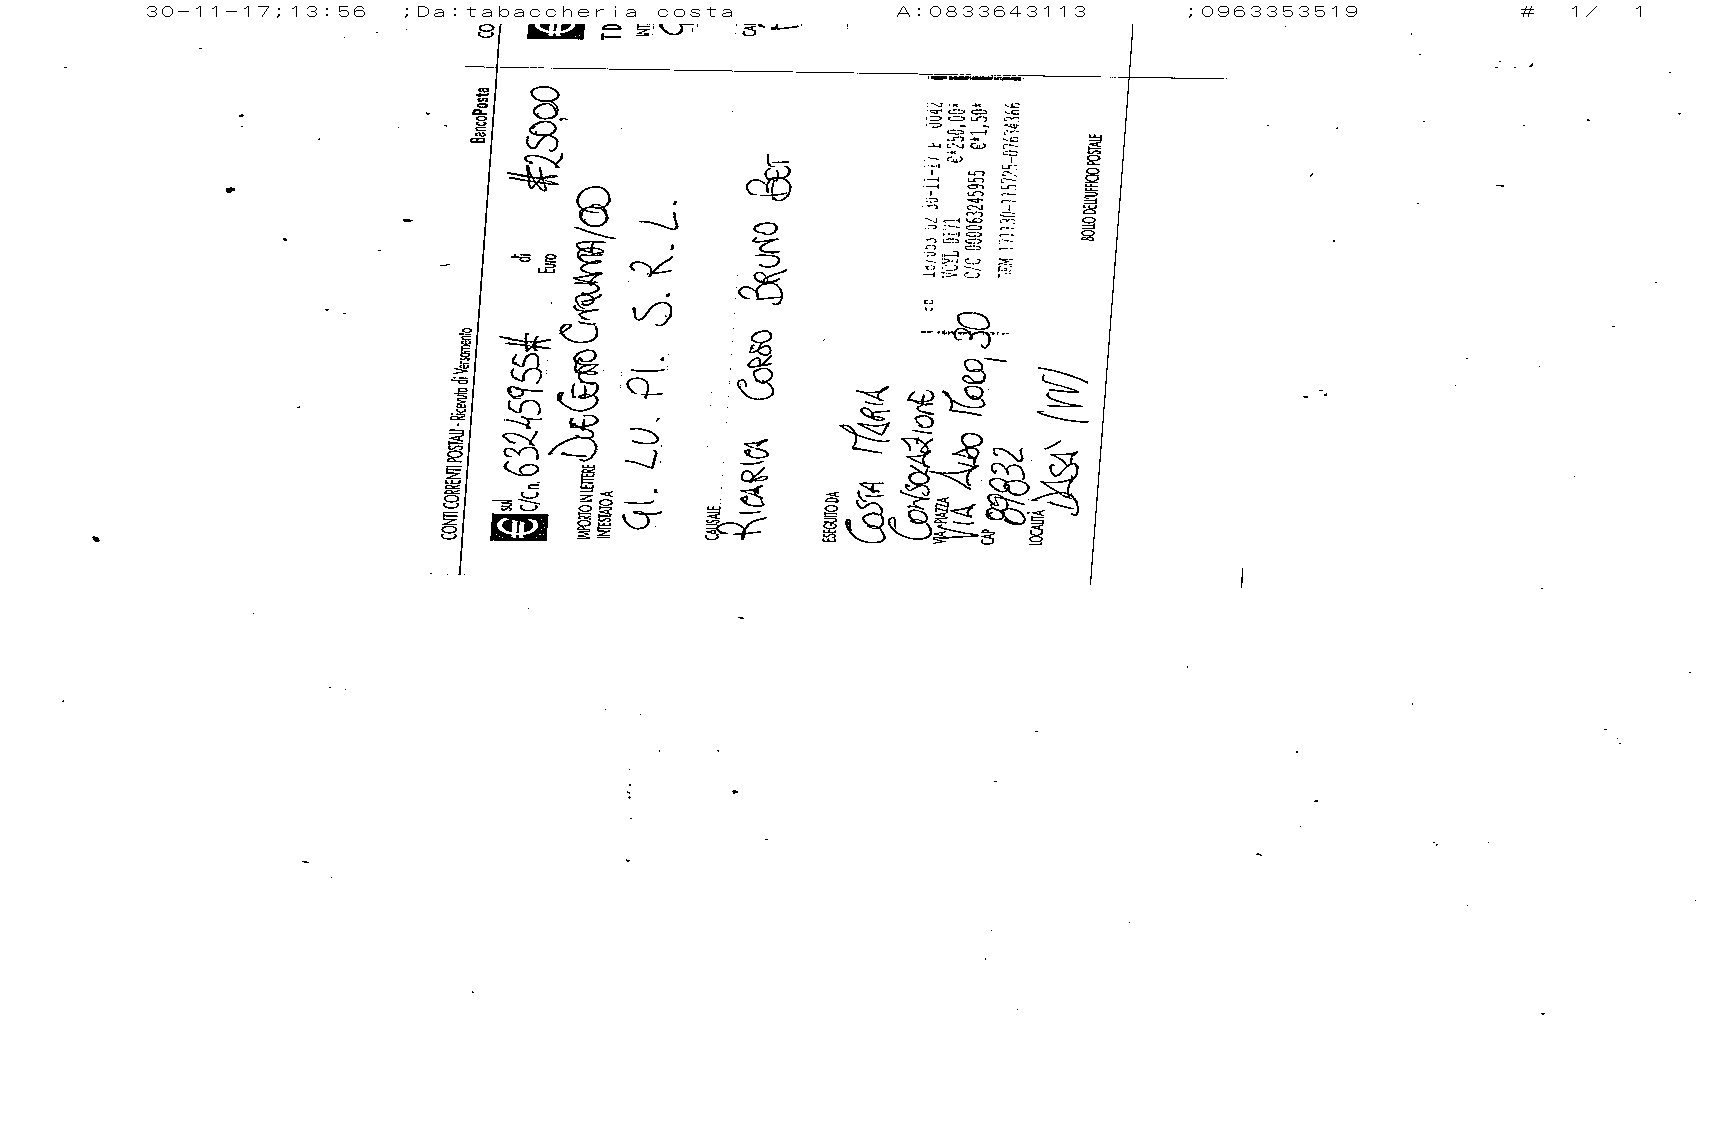 30-11-17;13:56 ;Da:tabaccheria costa A:0833643113 ;0963353519 # 1/ 1
CONTI CORRENTI POSTALI - Ricevuta di Versamento BancoPosta
sul
C/C n. 63245955# di Euro #250,00
IMPORTO IN LETTERE DUECENTOCINQUANTA/00
INTESTATO A
GI. LU. PI. S. R. L.
CAUSALE
RICARICA CORSO BRUNO BET
ESEGUITO DA
COSTA MARIA
CONSOLAZIONE
VIA - PIAZZA
VIA ALDO MORO, 30
CAP
89832
LOCALITÀ
DASA' (VV)
30-11-17 0042
VCYL 0171 €*250,00*
C/C 000063245955 €*1,50*
BOLLO DELL'UFFICIO POSTALE